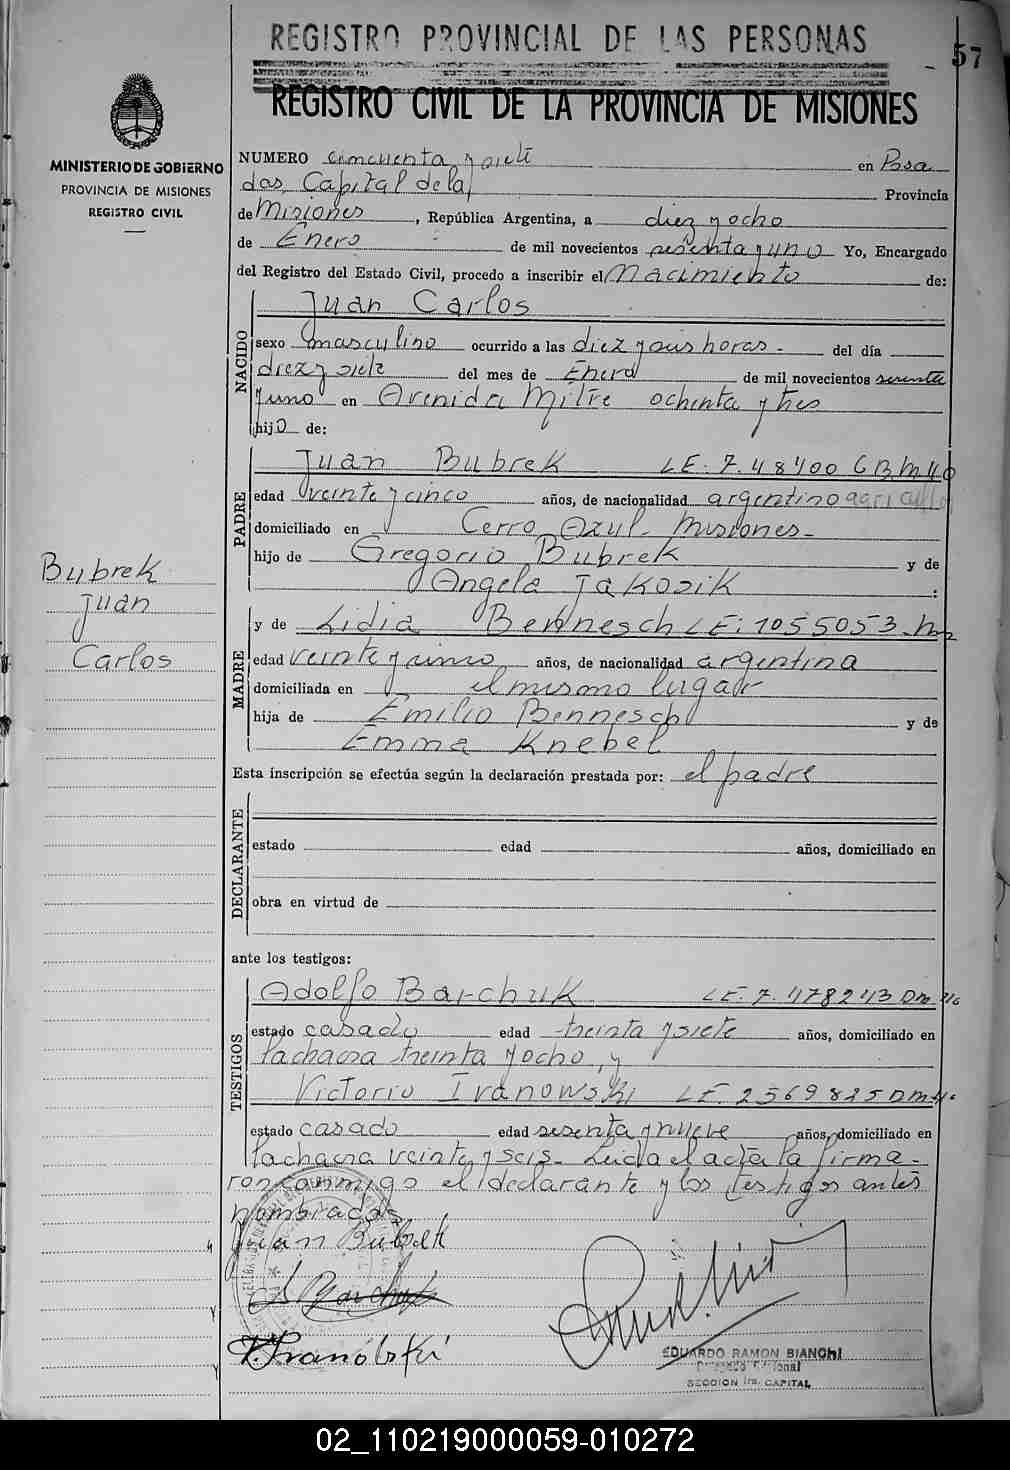 REGISTRO PROVINCIAL DE LAS PERSONAS
57
REGISTRO CIVIL DE LA PROVINCIA DE MISIONES
MINISTERIO DE GOBIERNO
PROVINCIA DE MISIONES
REGISTRO CIVIL
NUMERO cincuenta y siete en Posa
das, Capital de la Provincia
de Misiones, República Argentina, a diez y ocho
de Enero de mil novecientos sesenta y uno Yo, Encargado
del Registro del Estado Civil, procedo a inscribir el Nacimiento de:
NACIDO
Juan Carlos
sexo masculino ocurrido a las diez y seis horas.- del día
diez y siete del mes de Enero de mil novecientos sesenta
y uno en Avenida Mitre ochenta y tres
hijo de:
PADRE
Juan Bubrek LE. 7.48400
edad veinte y cinco años, de nacionalidad argentino
domiciliado en Cerro Azul - Misiones.-
hijo de Gregorio Bubrek y de
Angela Jakosik :
Bubrek
Juan
Carlos
MADRE
y de Lidia Bennesch LE: 1055053
edad veinte y cinco años, de nacionalidad argentina
domiciliada en el mismo lugar
hija de Emilio Bennesch y de
Emma Knebel
Esta inscripción se efectúa según la declaración prestada por: el padre
DECLARANTE
estado edad años, domiciliado en
obra en virtud de
ante los testigos:
TESTIGOS
Adolfo Barchuk LE. 7.478243 Dm 46
estado casado edad treinta y siete años, domiciliado en
la chacra treinta y ocho, y
Victorio Ivanowski LE. 2569825 Dm 4.
estado casado edad sesenta y nueve años, domiciliado en
la chacra veinte y seis - Leida el acta la firma-
ron conmigo el declarante y los testigos antes
nombrados
Juan Bubrek
A Barchuk
EDUARDO RAMON BIANCHI
SECCION 1ra. CAPITAL
02_110219000059-010272